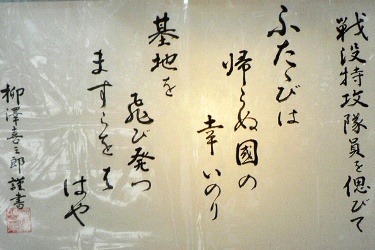 戦没特攻隊員を偲びて
ふたゝびは
帰らぬ國の
幸いのり
基地を
飛び発つ
ますらを
はや
柳澤喜三郎謹書